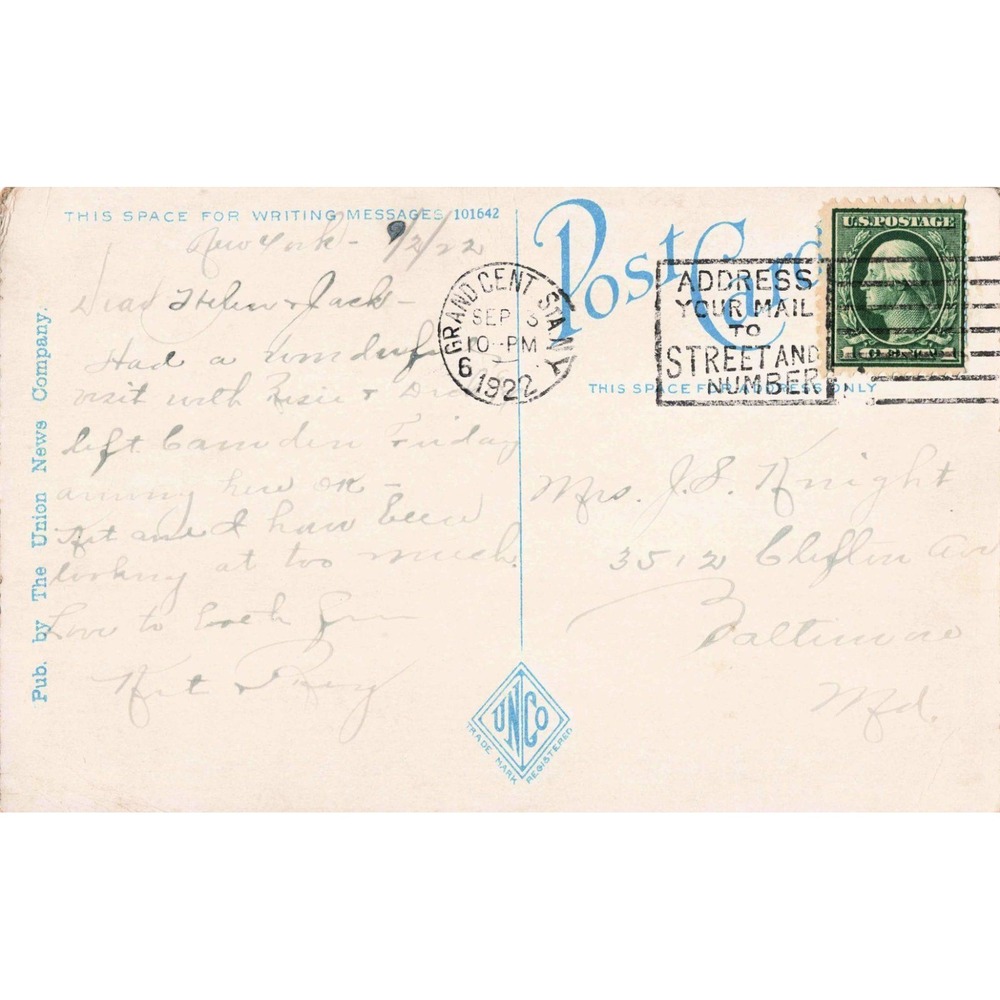 THIS SPACE FOR WRITING MESSAGES 101642
New York - 9/2/22
Dear Helen & Jack -
Had a wonderful
visit with &
left Camden Friday
arriving here OK -
Kit and I have been
looking at too much.
Love to both from
Kit & Ray
Pub. by The Union News Company.
Post Card
GRAND CENT. STA. N.Y.
SEP 3
10-PM
1922
6
ADDRESS
YOUR MAIL
TO
STREET AND
NUMBER
U.S. POSTAGE
THIS SPACE FOR ADDRESS ONLY
Mrs. J. S. Knight
3512 Clifton Ave
Baltimore
Md.
UNCO
TRADE MARK REGISTERED